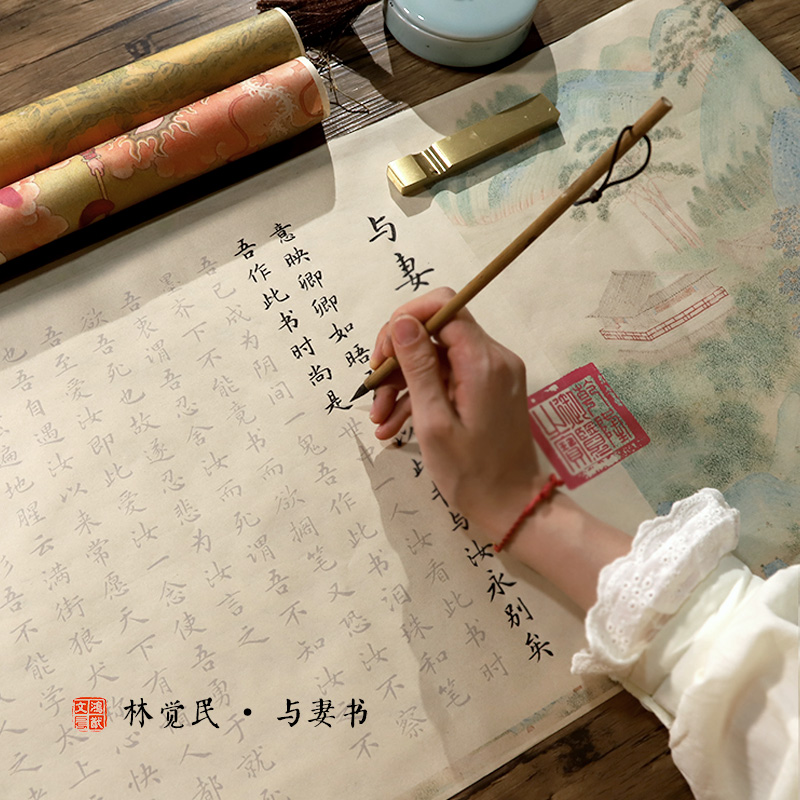 与妻
意映卿卿如晤
此书与汝永别矣
吾作此书时尚是世中一人汝看此书时
吾已成为阴间一鬼吾作此书泪珠和笔
墨齐下不能竟书而欲搁笔又恐汝不察
吾衷谓吾忍舍汝而死谓吾不知汝不
欲吾死也故遂忍悲为汝言之
吾至爱汝即此爱汝一念使吾勇于就死
也吾自遇汝以来常愿天下有
遍地腥云满街狼犬
心快
吾不能学太上
林觉民·与妻书